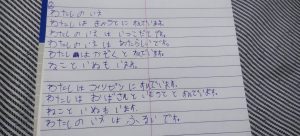 わたしの いえ
わたしは きょうとに すんでいます。
わたしの いえは いっこだてです。
わたしの いえは あたらしいです。
わたしは かぞくと すんでいます。
ねこと いぬも います。
わたしは フィリピンに すんでいます。
わたしは おばあさんと いもうとと すんでいます。
ねこと いぬも います。
わたしの いえは ふるい です。